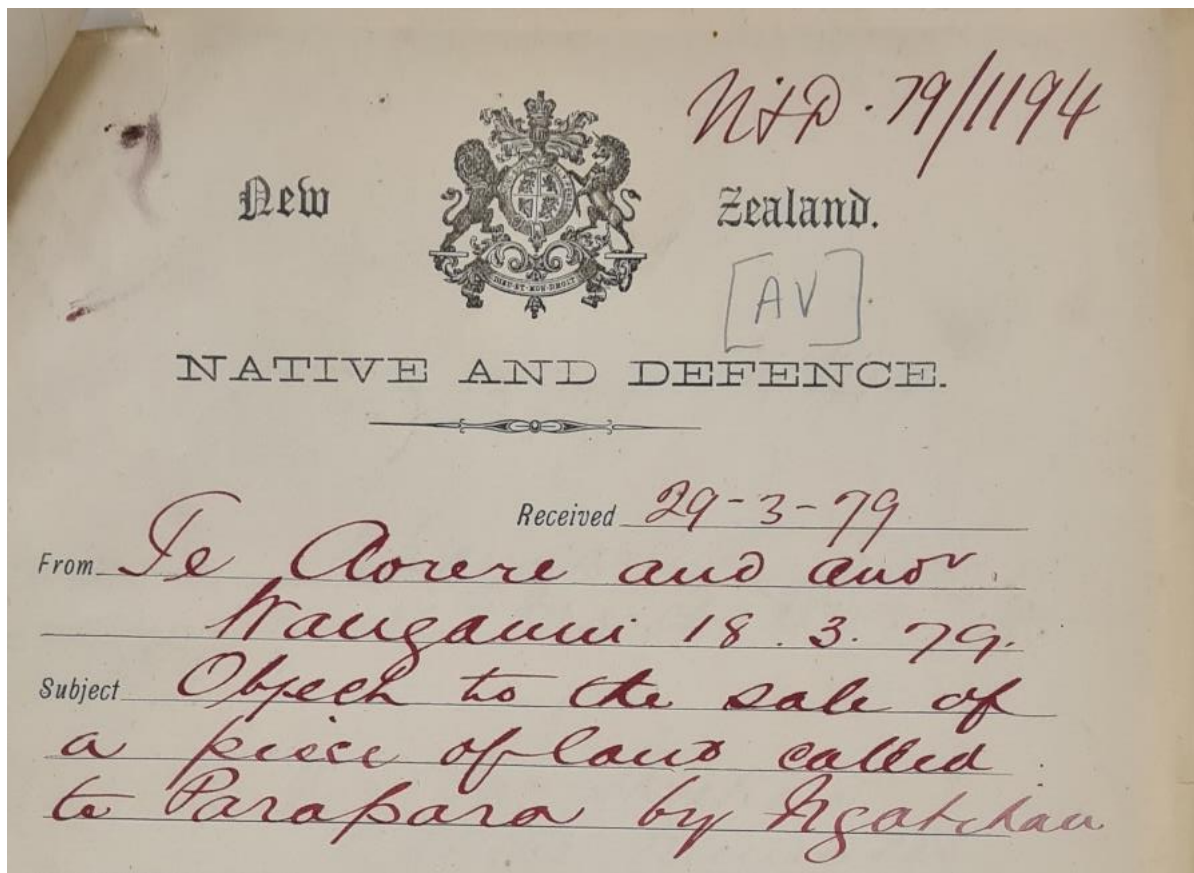 N&D. 79/1194
New Zealand.
DIEU ET MON DROIT
[AV]
NATIVE AND DEFENCE.
Received 29-3-79
From Te Aorere and anor
Wanganui 18.3.79.
Subject Object to the sale of
a piece of land called
te Parapara by